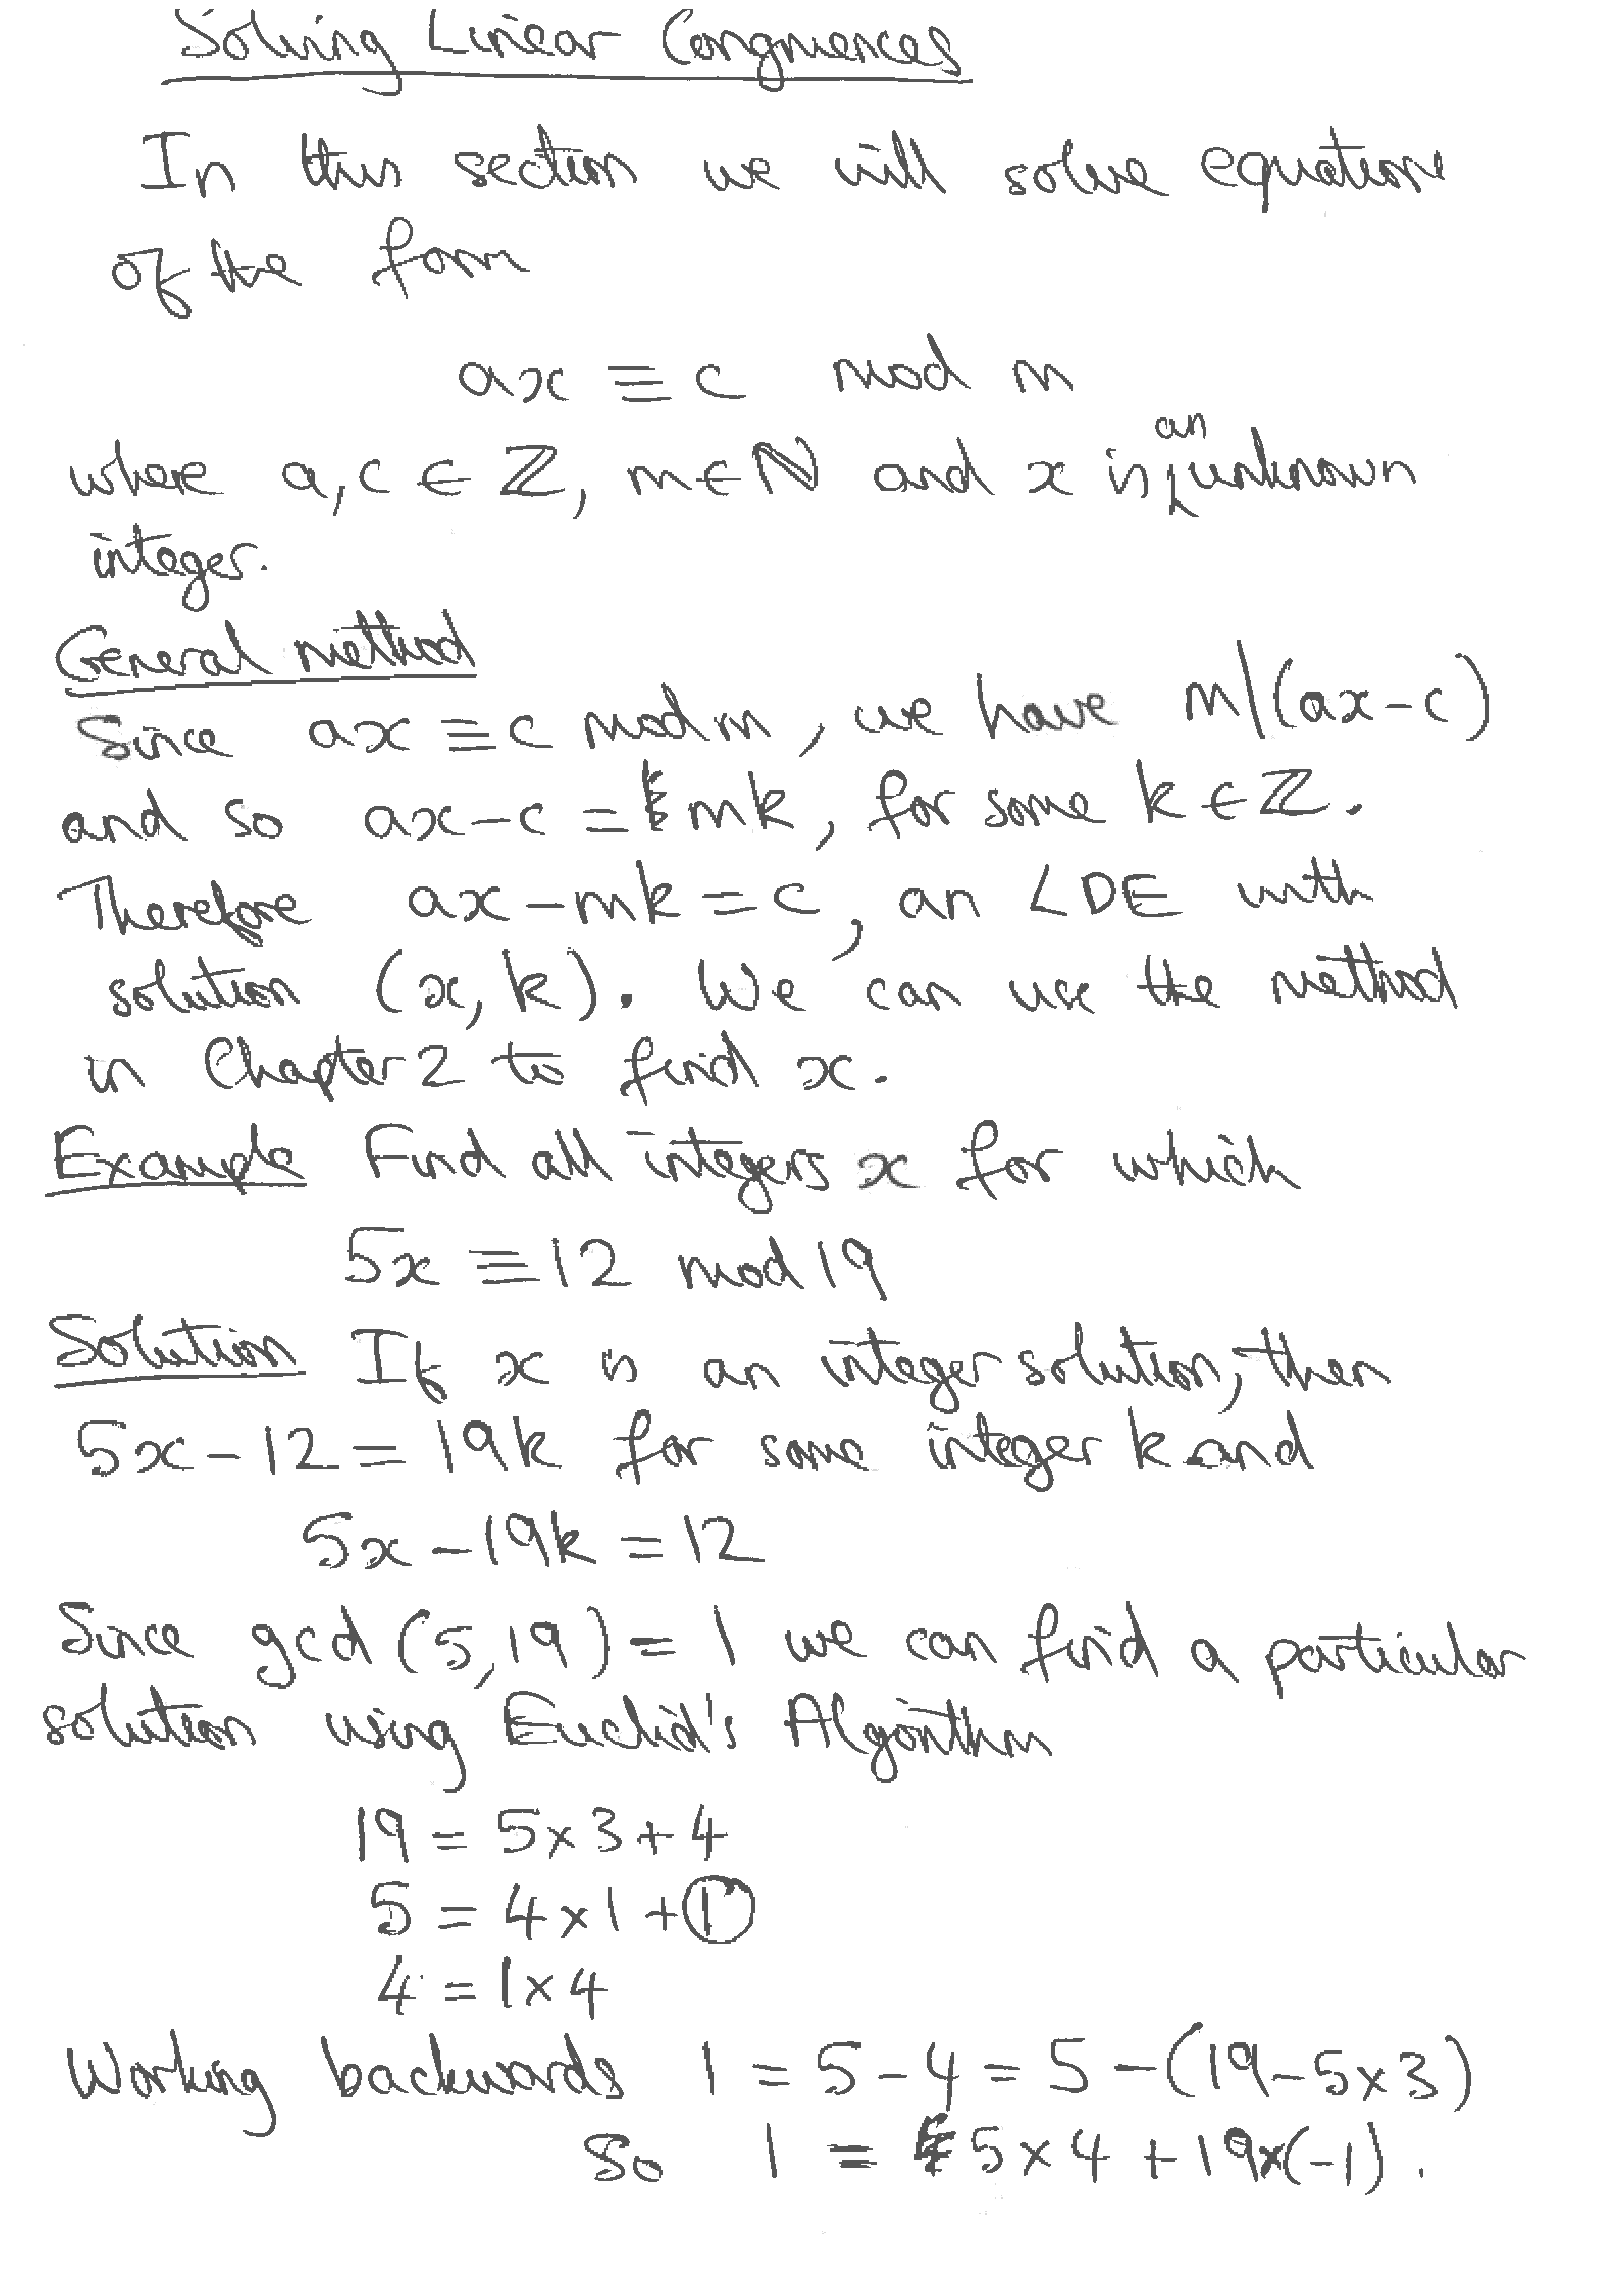 Solving Linear Congruences
In this section we will solve equations
of the form
ax ≡ c mod m
where a, c ∈ ℤ, m ∈ ℕ and x is an unknown
integer.
General method
Since ax ≡ c mod m, we have m|(ax-c)
and so ax-c = mk, for some k ∈ ℤ.
Therefore ax-mk = c, an LDE with
solution (x, k). We can use the method
in Chapter 2 to find x.
Example Find all integers x for which
5x ≡ 12 mod 19
Solution If x is an integer solution, then
5x - 12 = 19k for some integer k and
5x - 19k = 12
Since gcd (5,19) = 1 we can find a particular
solution using Euclid's Algorithm
19 = 5×3+4
5 = 4×1+1
4 = 1×4
Working backwards 1 = 5-4 = 5-(19-5×3)
So 1 = 5×4+19×(-1).